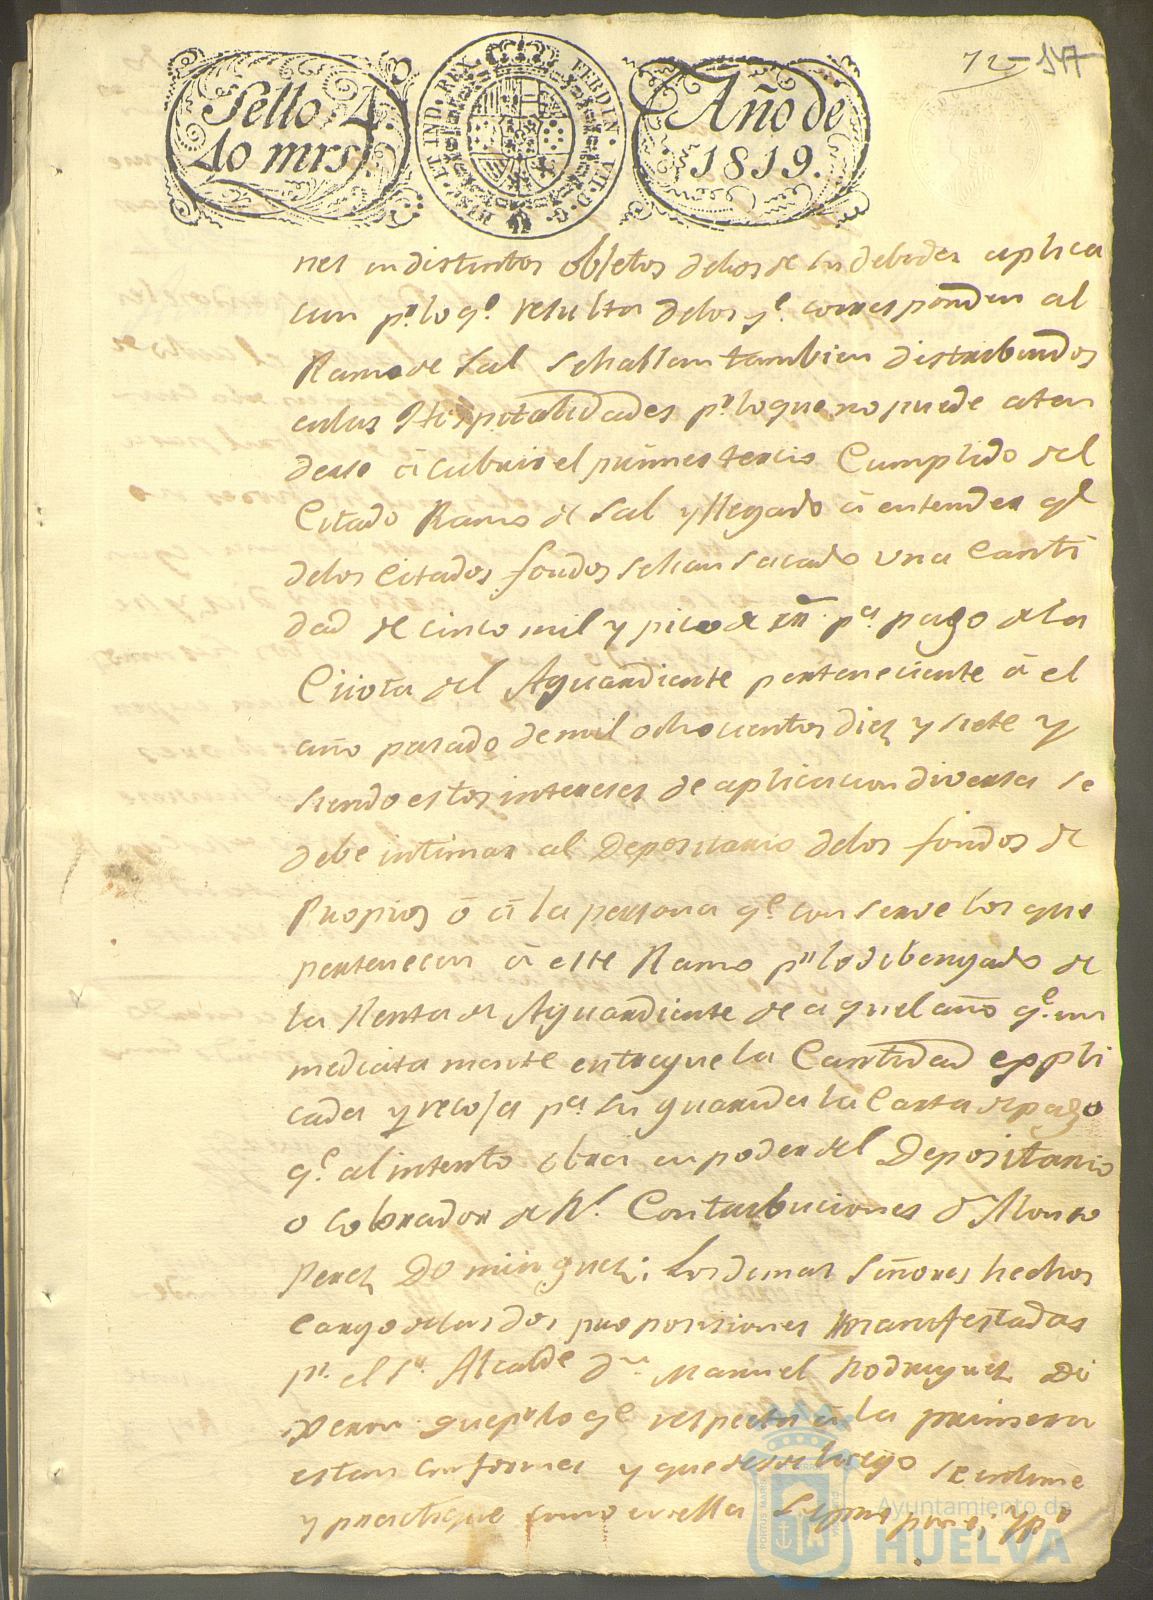 72 - 547
Sello 4.º
40 mrs.
HISP. ET IND. REX. FERDIN. VII. D. G.
Año de
1819.
nes en distintos objetos dellos de su debida aplica
cion pr. lo qe. resulta delos qe. corresponden al
Ramo de Sal se hallan tambien distribuidos
en las Hospitalidades pr. lo que no puede aten
derse á cubrir el primer tercio Cumplido del
Citado Ramo de Sal y llegado á entender qe
delos Citados fondos se han sacado una Canti
dad de cinco mil y pico de rrn. pa. pago de la
Cuota del Aguardiente perteneciente á el
año pasado de mil ochocientos diez y siete y
siendo estos intereses de aplicacion diversa se
debe intimar al Depositario delos fondos de
Propios ó á la persona qe. conserve los que
pertenecen á este Ramo pr. lo debengado de
la Renta de Aguardiente de aquel año qe. in
mediatamente entregue la Cantidad expli
cada y recoja pa. su guarda la Carta de pago
qe. al intento obra en poder del Depositario
o cobrador de Rs. Contribuciones Dn Alonso
Perez Dominguez; Los demas Señores hechos
Cargo de las dos proposiciones manifestadas
pr. el Sr. Alcalde Dn Manuel Rodriguez Di
geron que pr. lo qe respecta á la primera
estan conformes y que desde luego se intime
y practique como en ella se propone; y pr
Ayuntamiento de
HUELVA